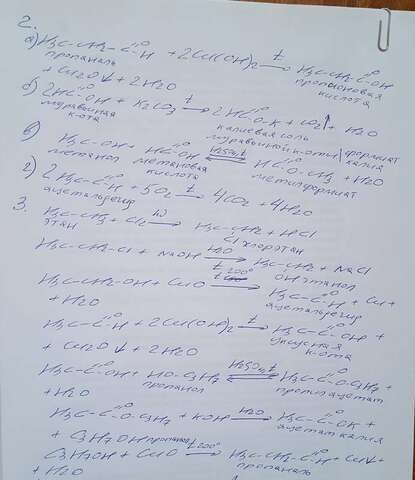 2.
а) H₃C-CH₂-C(=O)-H + 2Cu(OH)₂ →t H₃C-CH₂-C(=O)-OH
пропаналь пропионовая кислота
+ Cu₂O↓ + 2H₂O
б) 2HC(=O)-OH + K₂CO₃ →t 2HC(=O)-O-K + CO₂↑ + H₂O
муравьиная к-ота калиевая соль муравьиной к-оты | формиат калия
в) H₃C-OH + HC(=O)-OH ⇄H₂SO₄,t HC(=O)-O-CH₃ + H₂O
метанол метановая кислота метилформиат
г) 2H₃C-C(=O)-H + 5O₂ →t 4CO₂ + 4H₂O
ацетальдегид
3.
H₃C-CH₃ + Cl₂ →hν H₃C-CH₂ + HCl
этан Cl хлорэтан
H₃C-CH₂-Cl + NaOH →H₂O H₃C-CH₂ + NaCl
OH этанол
H₃C-CH₂-OH + CuO →t 200° H₃C-C(=O)-H + Cu +
ацетальдегид
+ H₂O
H₃C-C(=O)-H + 2Cu(OH)₂ →t H₃C-C(=O)-OH +
уксусная к-ота
+ Cu₂O↓ + 2H₂O
H₃C-C(=O)-OH + HO-C₃H₇ ⇄H₂SO₄,t H₃C-C(=O)-O-C₃H₇ +
пропанол пропилацетат
+ H₂O
H₃C-C(=O)-O-C₃H₇ + KOH →H₂O H₃C-C(=O)-OK +
ацетат калия
+ C₃H₇OH пропанол
C₃H₇OH + CuO →t 200° H₃C-CH₂-C(=O)-H + Cu↓ +
пропаналь
+ H₂O